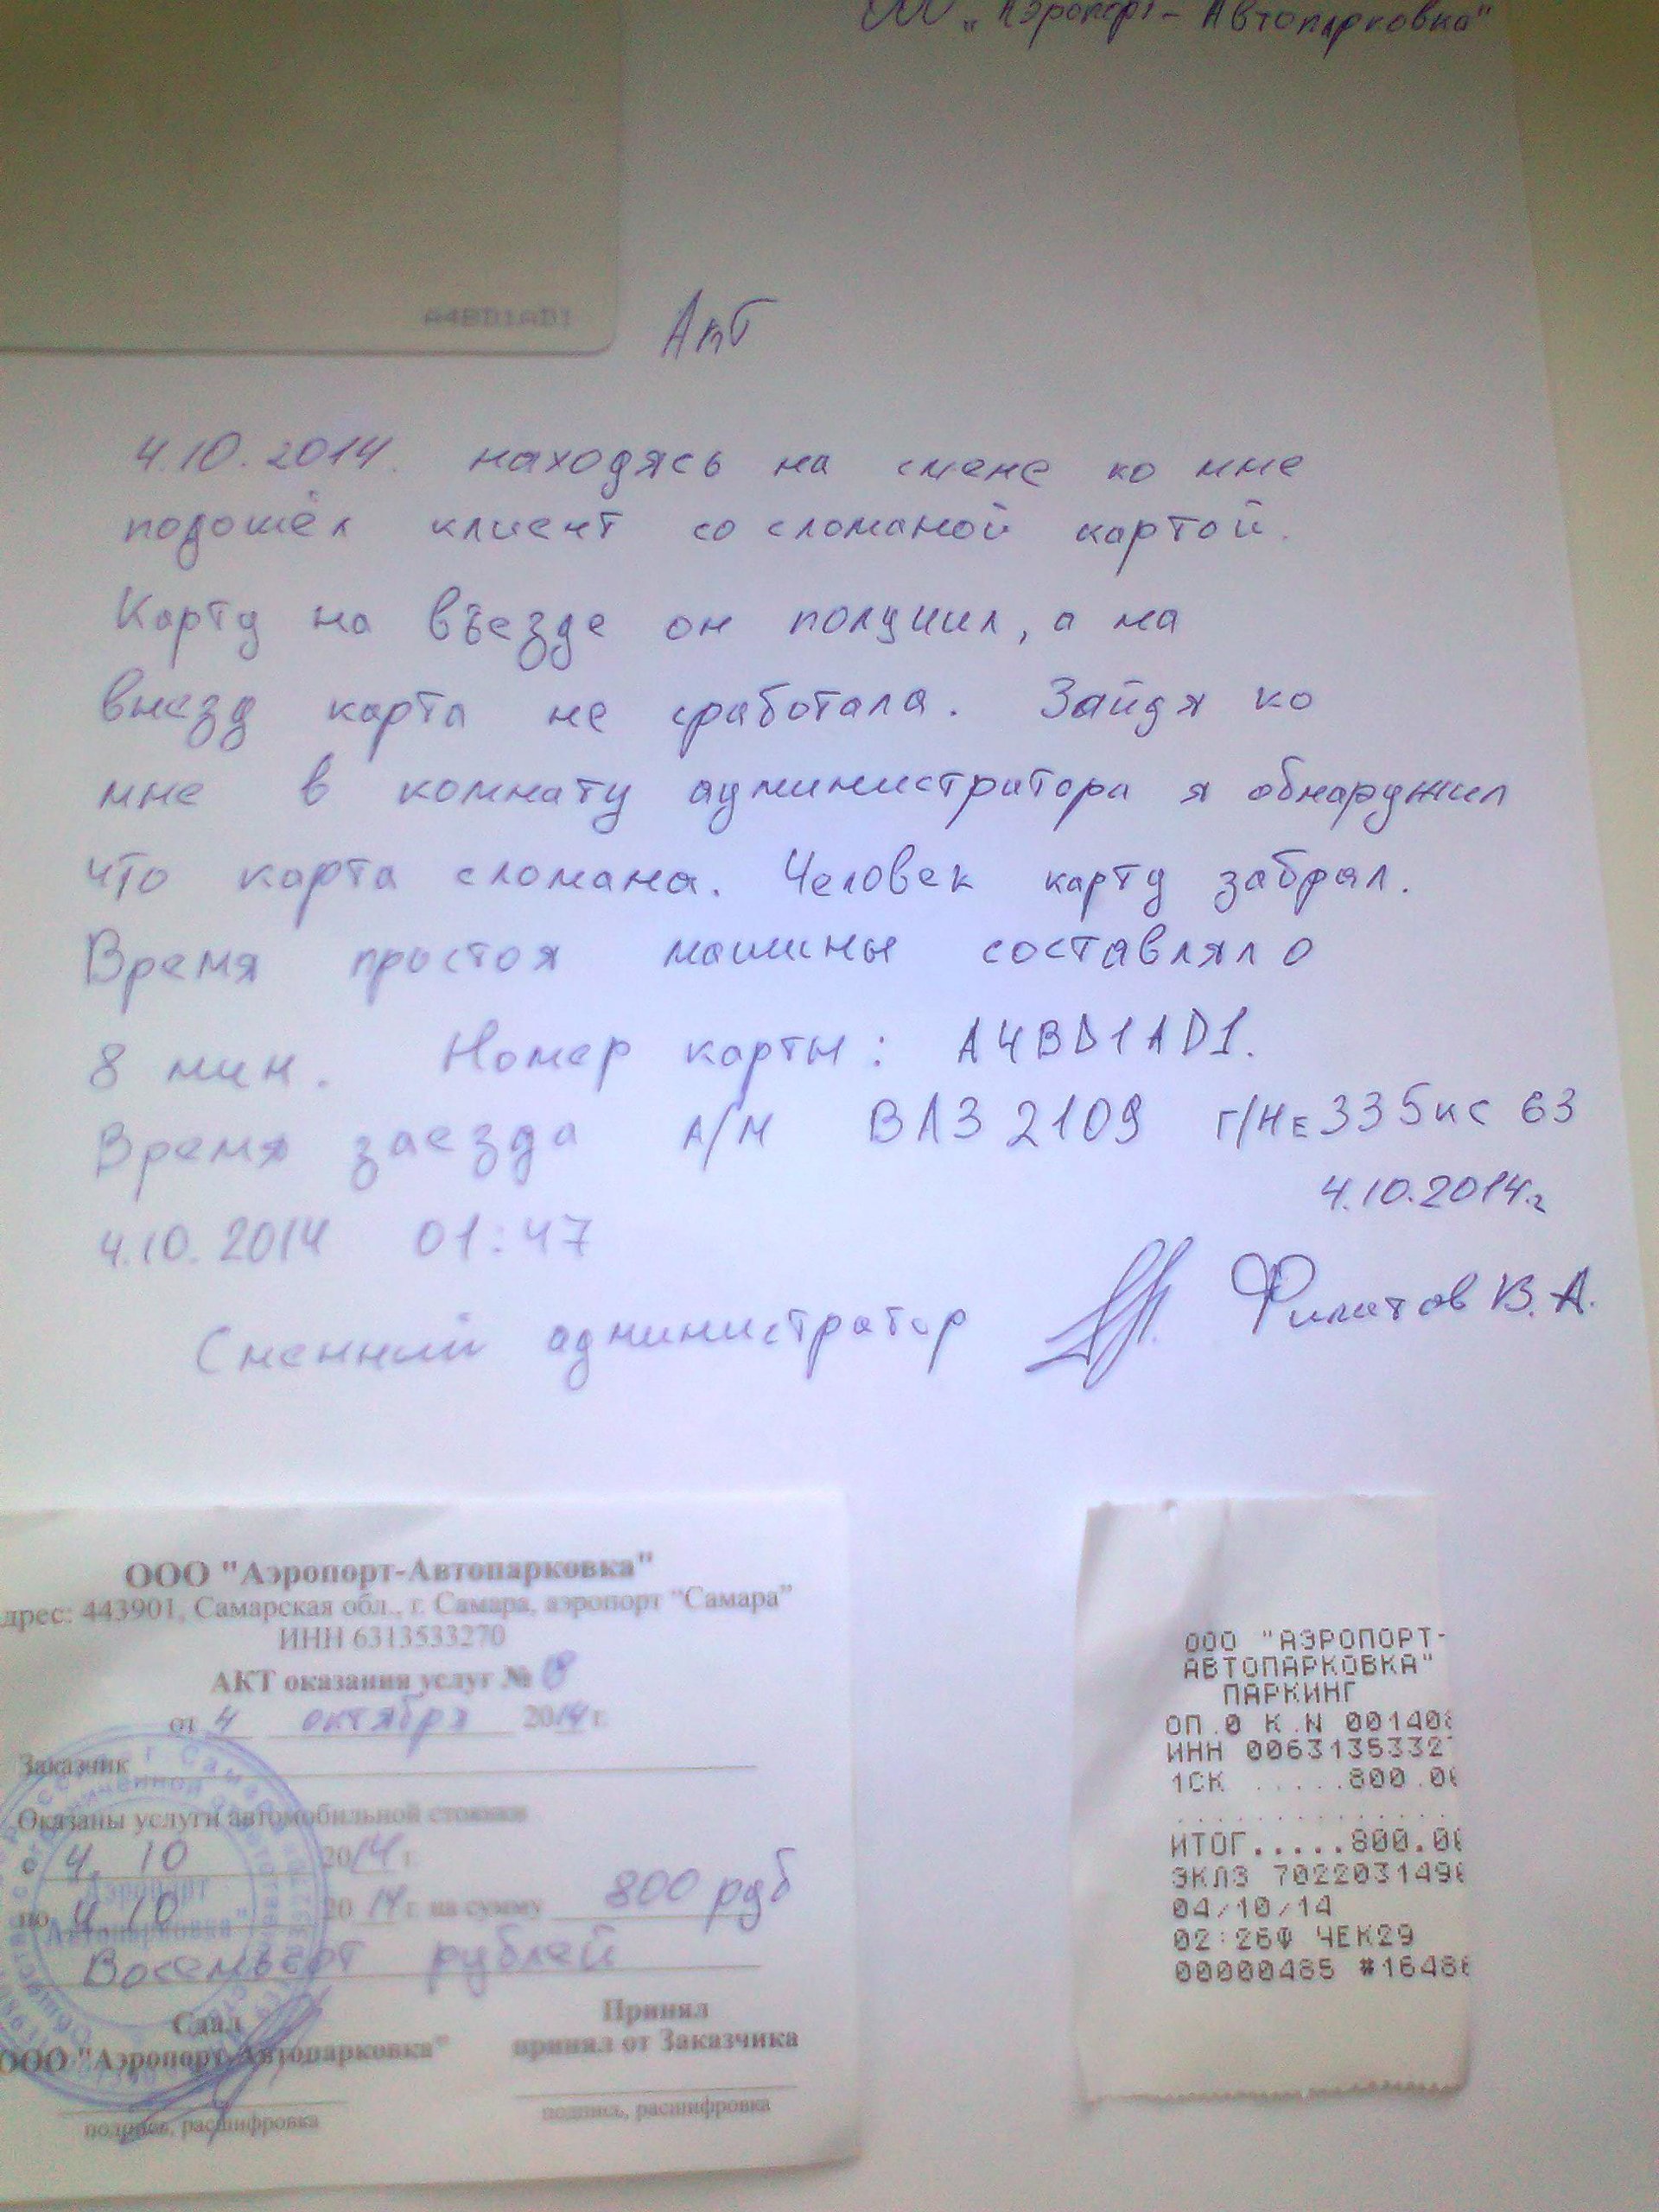 ООО „Аэропорт - Автопарковка"
A4BD1AD1
Акт
4.10.2014. находясь на смене ко мне
подошёл клиент со сломаной картой.
Карту на въезде он получил, а на
выезд карта не сработала. Зайдя ко
мне в комнату администратора я обнаружил
что карта сломана. Человек карту забрал.
Время простоя машины составляло
8 мин. Номер карты: A4BD1AD1.
Время заезда А/М ВАЗ 2109 Г/Н Е335КС 63
4.10.2014г
4.10.2014 01:47
Сменный администратор Филатов В.А.
ООО "Аэропорт-Автопарковка"
дрес: 443901, Самарская обл., г. Самара, аэропорт "Самара"
ИНН 6313533270
АКТ оказания услуг №
от 4 октября 2014 г.
Заказчик
Оказаны услуги автомобильной стоянки
с 4. 10 2014 г.
по 4 10 2014 г. на сумму 800 руб
Восемьсот рублей
Сдал
ООО "Аэропорт-Автопарковка"
подпись, расшифровка
Принял
принял от Заказчика
подпись, расшифровка
ООО "АЭРОПОРТ-
АВТОПАРКОВКА"
ПАРКИНГ
ОП.0 К.N 001408
ИНН 00631353327
1СК .....800.00
..............
ИТОГ.....800.00
ЭКЛЗ 702203149
04/10/14
02:26Ф ЧЕК29
00000485 #16486